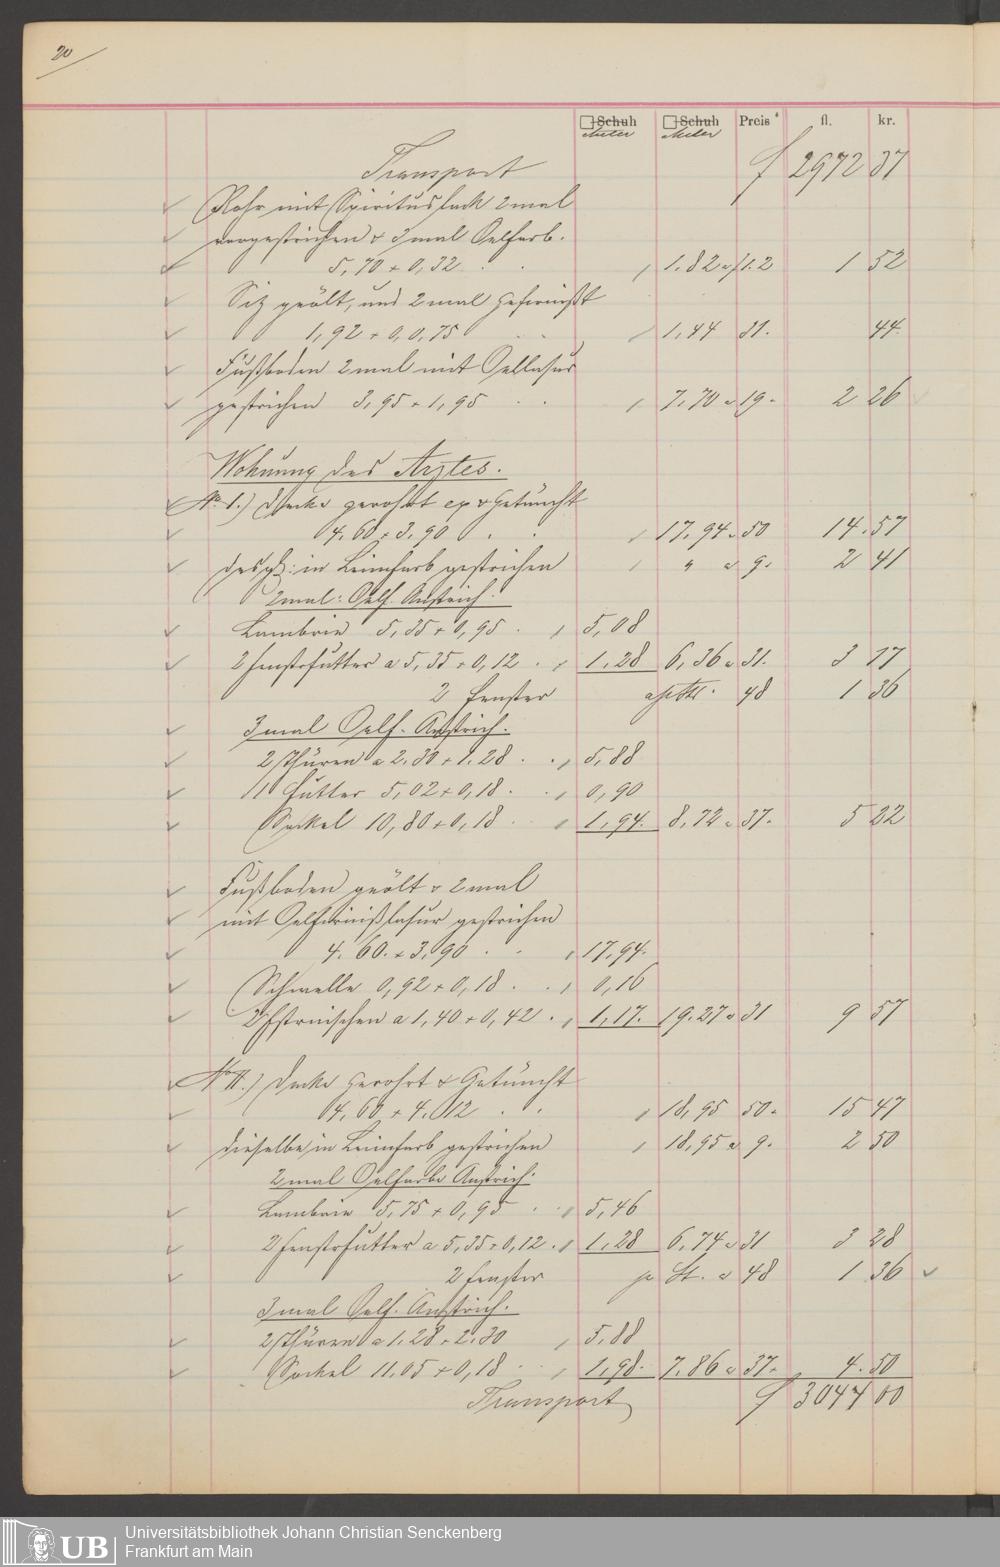 20
□ Schuh □ Schuh Preis fl. kr.
Meter Meter
Transport f 2972 37
Rohr mit Spirituslack 2 mal
vorgestrichen & 3 mal Oelfarb.
5,70 + 0,32 . . , 1.82 a f 1.2 1 52
Sitz geölt, und 2 mal gefirnißt
1,92 + 0,75 , 1,44 31. 44.
Fußboden 2 mal mit Oellasur
gestrichen 3,95 + 1,95 . . , 7.70 a 19. 2 26
Wohnung des Arztes.
No I.) Decke gerohrt & Getüncht
4.60 + 3.90 . . , 17.94 a 50 14.57
desgl: in Leimfarb gestrichen , " a 9. 2 41
2mal: Oelf. Anstrich.
Lambrie 5,35 + 0,95 . , 5,08
2 Fensterfutter a 5,35 + 0,12 . , 1.28 6,36 a 31. 3 17
2 Fenster 48 1 36
3 mal Oelf. Anstrich.
2 Thüren a 2.30 + 1.28 . . , 5,88
1 Futter 5,02 + 0,18 . . , 0,90
Sockel 10,80 + 0,18 . , 1,94. 8,72 a 37. 5 22
Fußboden geölt & 2 mal
mit Oelfirnißlasur gestrichen
4.60. + 3.90 . . , 17.94.
Schwelle 0,92 + 0,18 . . , 0,16
2 Fstrnischen a 1,40 + 0,42 . , 1,17. 19.27 a 31 9 57
No II.) Decke gerohrt & Getüncht
4.60 + 4.12 . . , 18,95 50. 15 47
dieselbe in Leimfarb gestrichen , 18,95 a 9. 2 50
2 mal Oelfarbe Anstrich.
Lambrie 5,75 + 0,95 . . , 5,46
2 Fensterfutter a 5,35 + 0,12 . , 1,28 6,74 a 31 3 28
2 Fenster p St. a 48 1 36
3 mal Oelf. Anstrich.
2 Thüren a 1.28 + 2.30 , 5.88
Sockel 11.05 + 0,18 . . , 1,98. 7.86 a 37. 4.50
Transport f 3044 00
UB
Universitätsbibliothek Johann Christian Senckenberg
Frankfurt am Main